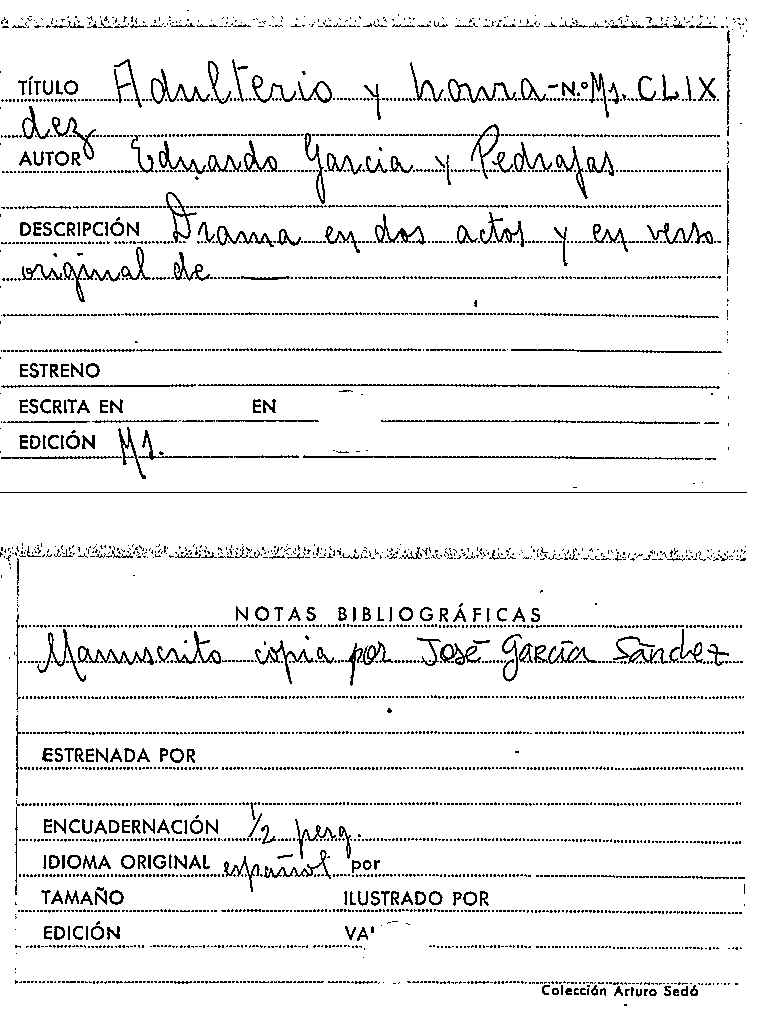 TÍTULO Adulterio y honra-N.º Ms. CLIX
dez
AUTOR Eduardo Garcia y Pedrajas
DESCRIPCIÓN Drama en dos actos y en verso
original de ____
ESTRENO
ESCRITA EN EN
EDICIÓN Ms.
NOTAS BIBLIOGRÁFICAS
Manuscrito copia por José García Sández
ESTRENADA POR
ENCUADERNACIÓN 1/2 perg.
IDIOMA ORIGINAL español por
TAMAÑO ILUSTRADO POR
EDICIÓN VA
Colección Arturo Sedó